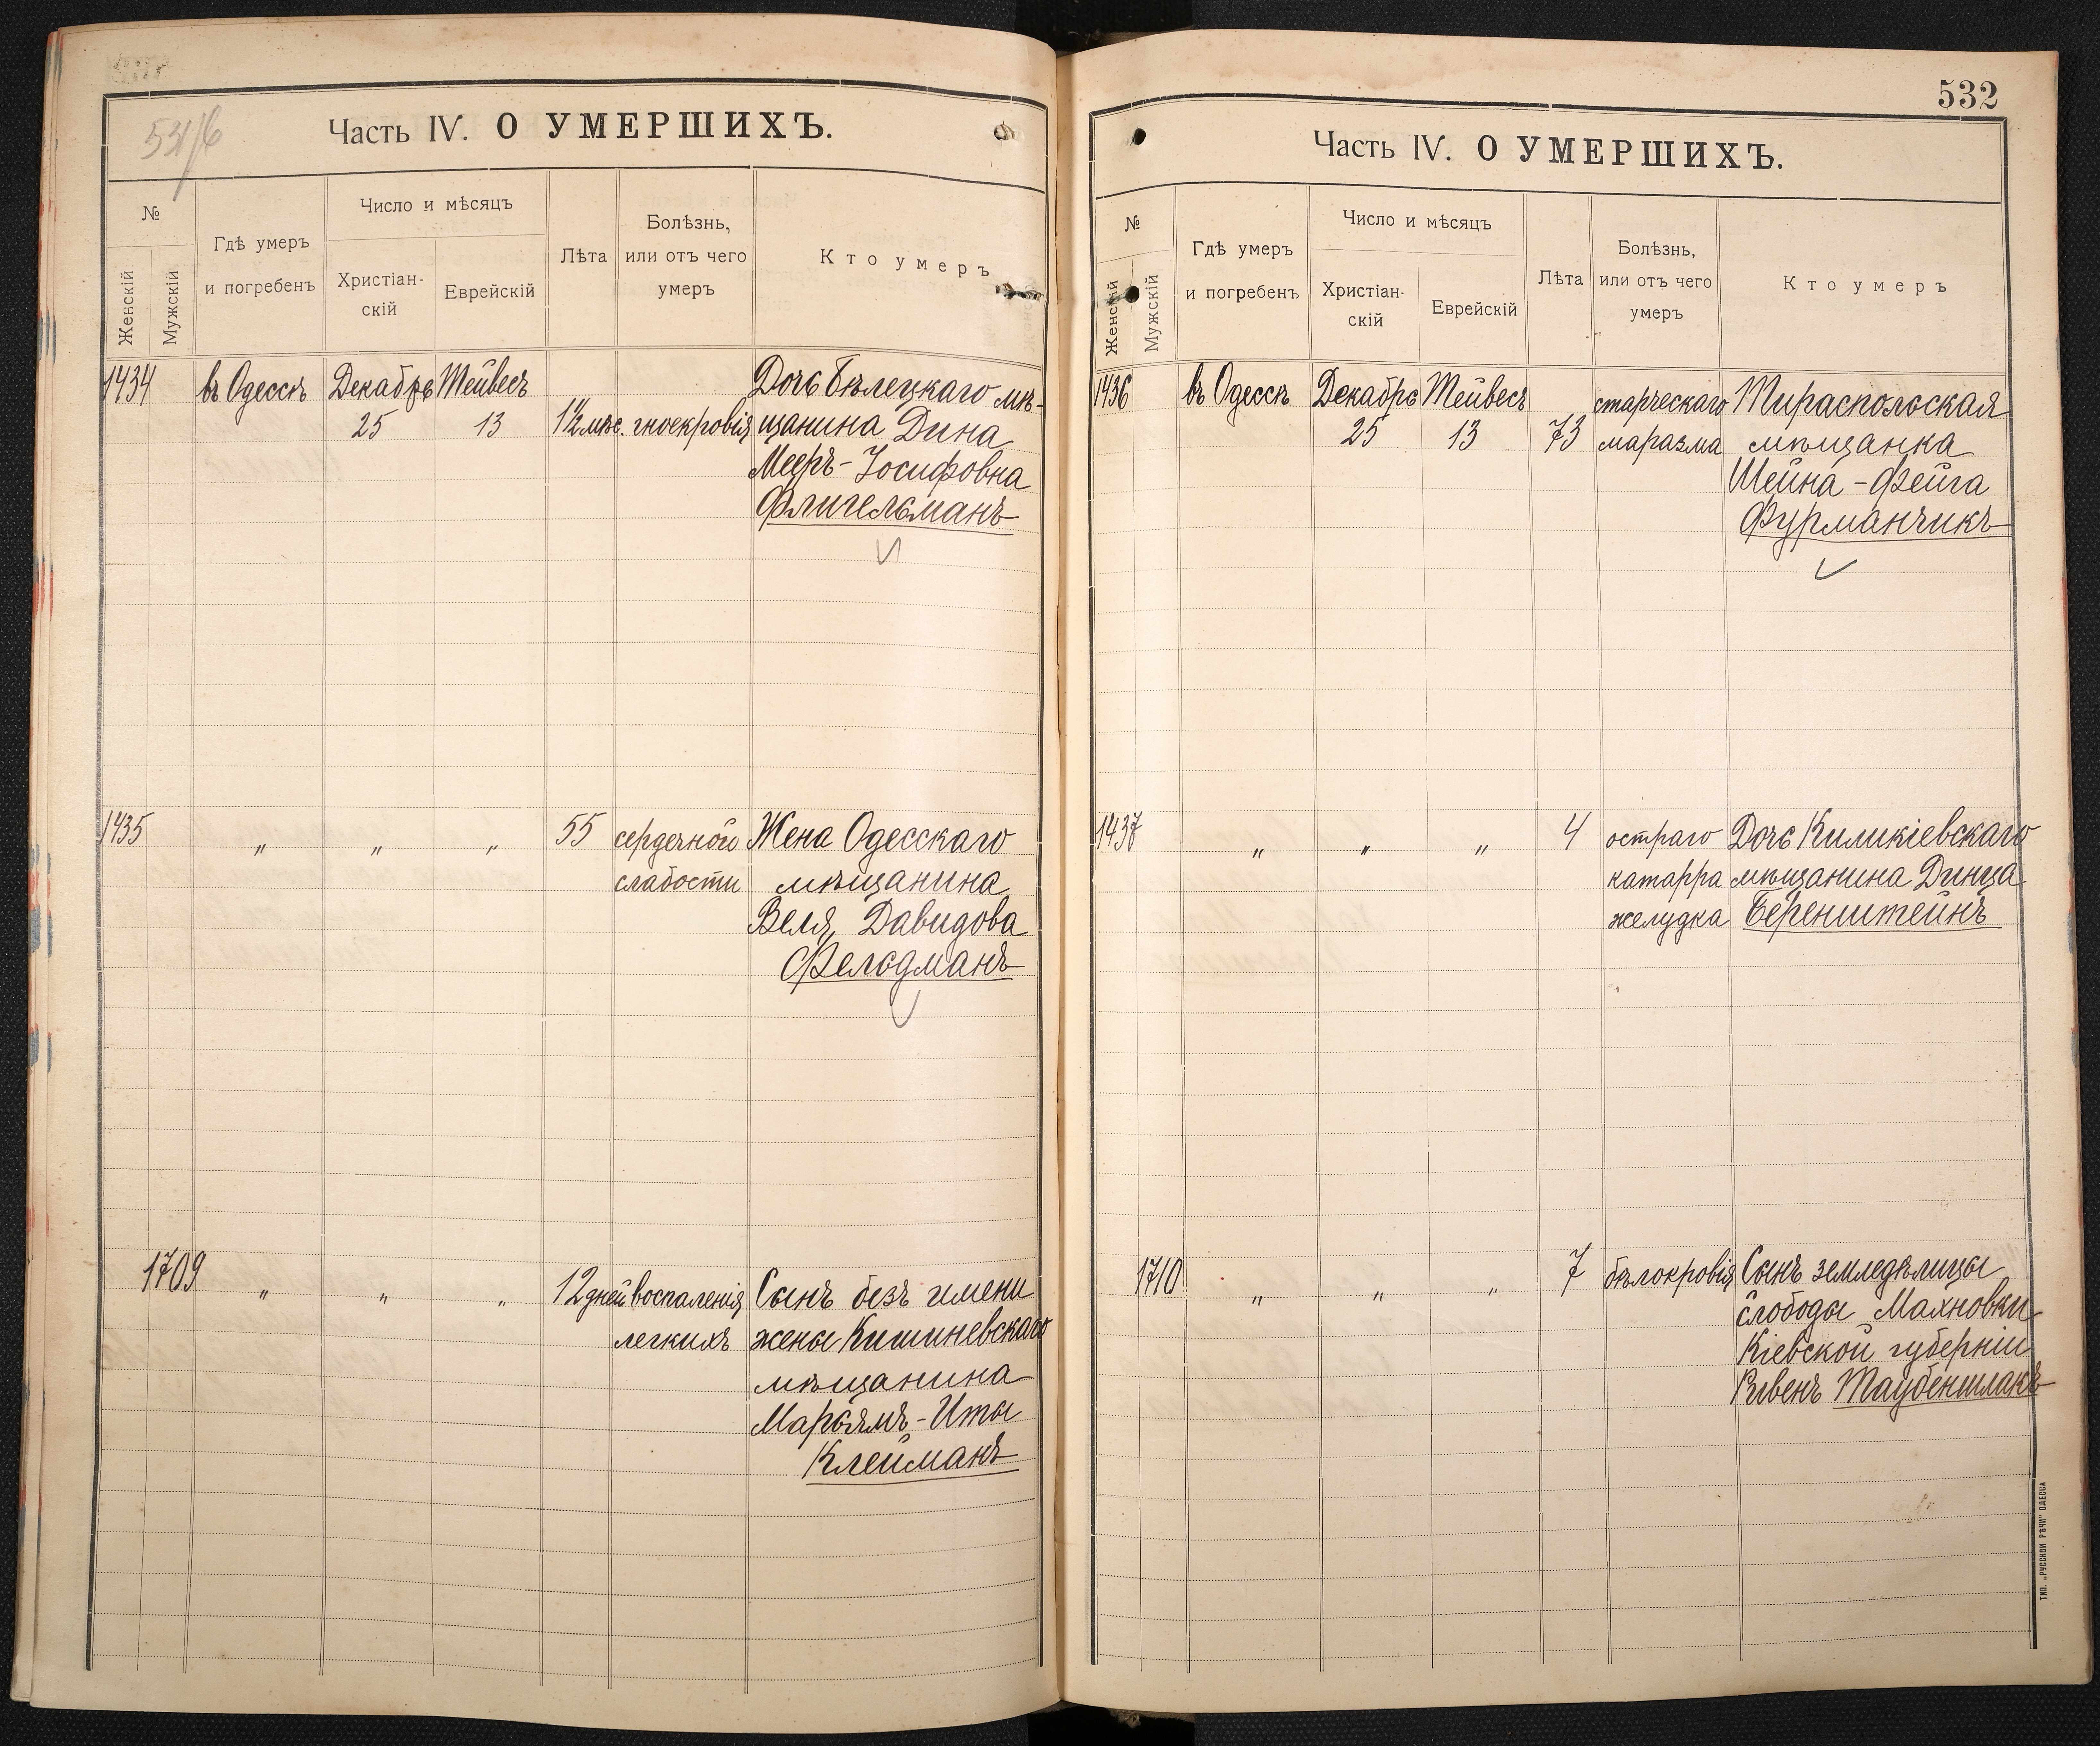 Часть IV. О УМЕРШИХЪ.
№
Женскій
Мужскій
Гдѣ умеръ
и погребенъ
Число и мѣсяцъ
Христіан-
скій
Еврейскій
Лѣта
Болѣзнь,
или отъ чего
умеръ
Кто умеръ
1434
въ Одессѣ
Декабрь
25
Тейвесъ
13
1½ мѣс.
гноекровія
Дочь Бѣлецкаго мѣ-
щанина Дина
Мееръ-Іосифовна
Флигельманъ
1435
"
"
"
55
сердечной
слабости
Жена Одесскаго
мѣщанина
Веля Давидова
Фельдманъ
1709
"
"
"
12 дней
воспаленія
легкихъ
Сынъ безъ имени
жены Кишиневскаго
мѣщанина
Марьямъ-Иты
Клейманъ
532
Часть IV. О УМЕРШИХЪ.
№
Женскій
Мужскій
Гдѣ умеръ
и погребенъ
Число и мѣсяцъ
Христіан-
скій
Еврейскій
Лѣта
Болѣзнь,
или отъ чего
умеръ
Кто умеръ
1436
въ Одессѣ
Декабрь
25
Тейвесъ
13
73
старческаго
маразма
Тираспольская
мѣщанка
Шейна-Фейга
Фурманчикъ
1437
"
"
"
4
остраго
катарра
желудка
Дочь Киликіевскаго
мѣщанина Динца
Беренштейнъ
1710
"
"
"
7
бѣлокровія
Сынъ земледѣлицы
слободы Махновки
Кіевской губерніи
Таубеншлакъ
ТИП. „РУССКОЙ РѢЧИ" ОДЕССА